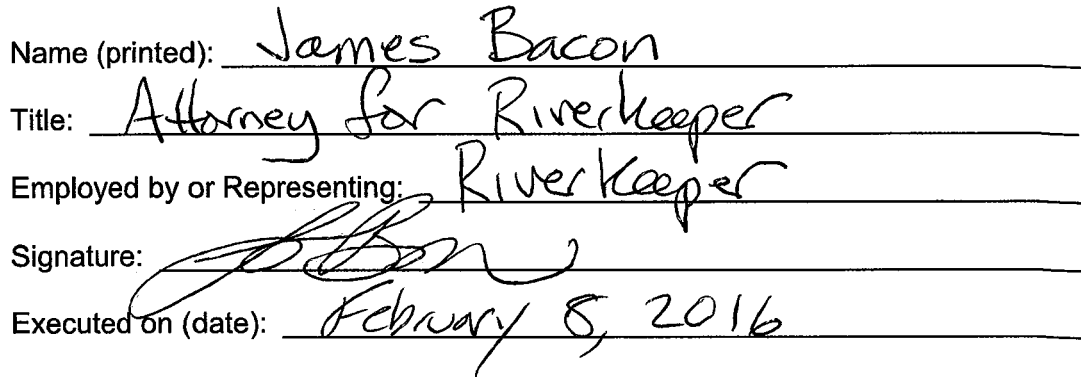 Name (printed): James Bacon
Title: Attorney for Riverkeeper
Employed by or Representing: RiverKeeper
Signature:
Executed on (date): February 8, 2016